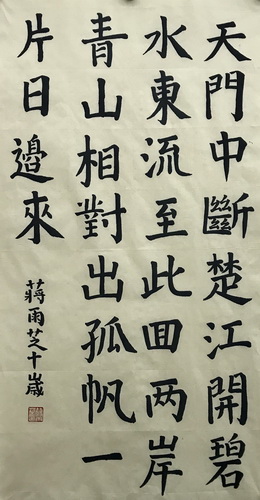 天門中斷楚江開碧
水東流至此回两岸
青山相對出孤帆一
片日邊來
蔣雨芝十歲